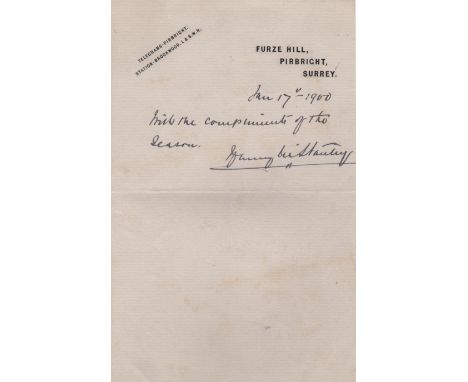 TELEGRAMS-PIRBRIGHT.
STATION-BROOKWOOD, L.& S.W.R.
FURZE HILL,
PIRBRIGHT,
SURREY.
Jan 17" 1900
With the compliments of the
Season.
Henry M Stanley